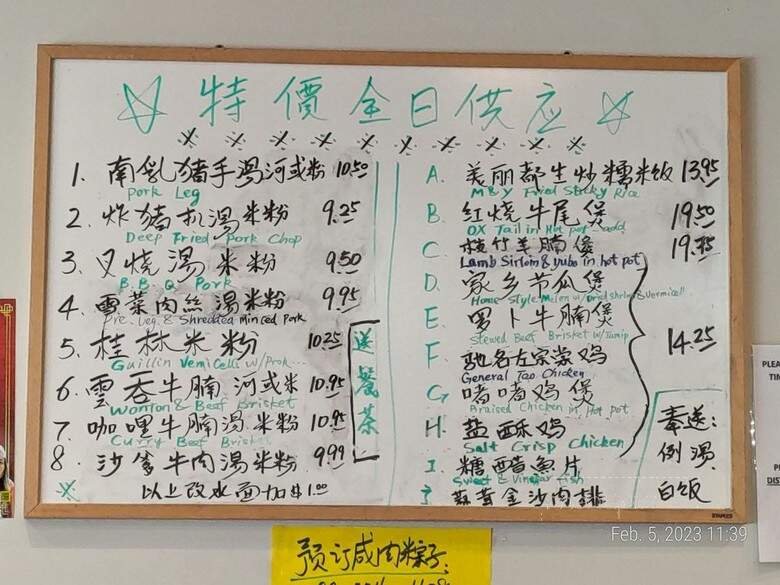 特價全日供应
1. 南乳猪手湯河或粉 10.50
Pork Leg
2. 炸猪扒湯米粉 9.25
Deep Fried Pork Chop
3. 叉烧湯米粉 9.50
B.B.Q Pork
4. 雪菜肉丝湯米粉 9.95
Pre. Veg. & Shredded minced pork
5. 桂林米粉 10.25
Guillin Vemicelli w/Prok...
6. 雲吞牛腩河或米 10.95
Wonton & Beef Brisket
7. 咖哩牛腩湯米粉 10.95
Curry Beef Brisket
8. 沙爹牛肉湯米粉 9.99
以上改水面加$1.00
送餐茶
A. 美丽都生炒糯米饭 13.95
MBY Fried Sticky Rice
B. 红烧牛尾煲 19.50
OX Tail in Hot pot
C. 枝竹羊腩煲
Lamb Sirloin & yubo in hot pot
D. 家乡节瓜煲
Home Style Melon w/Dried shrimp & Vermicell
E. 罗卜牛腩煲
Stewed Beef Brisket w/Turnip
F. 驰名左宗棠鸡
General Tao Chicken
G. 啫啫鸡煲
Braised Chicken in Hot pot
H. 盐酥鸡
Salt Crisp Chicken
14.25
I. 糖醋魚片
Sweet & Vinegar fish
蒜茸金沙肉排
奉送:
例湯
白饭
预订咸肉粽子
Feb. 5, 2023 11:39